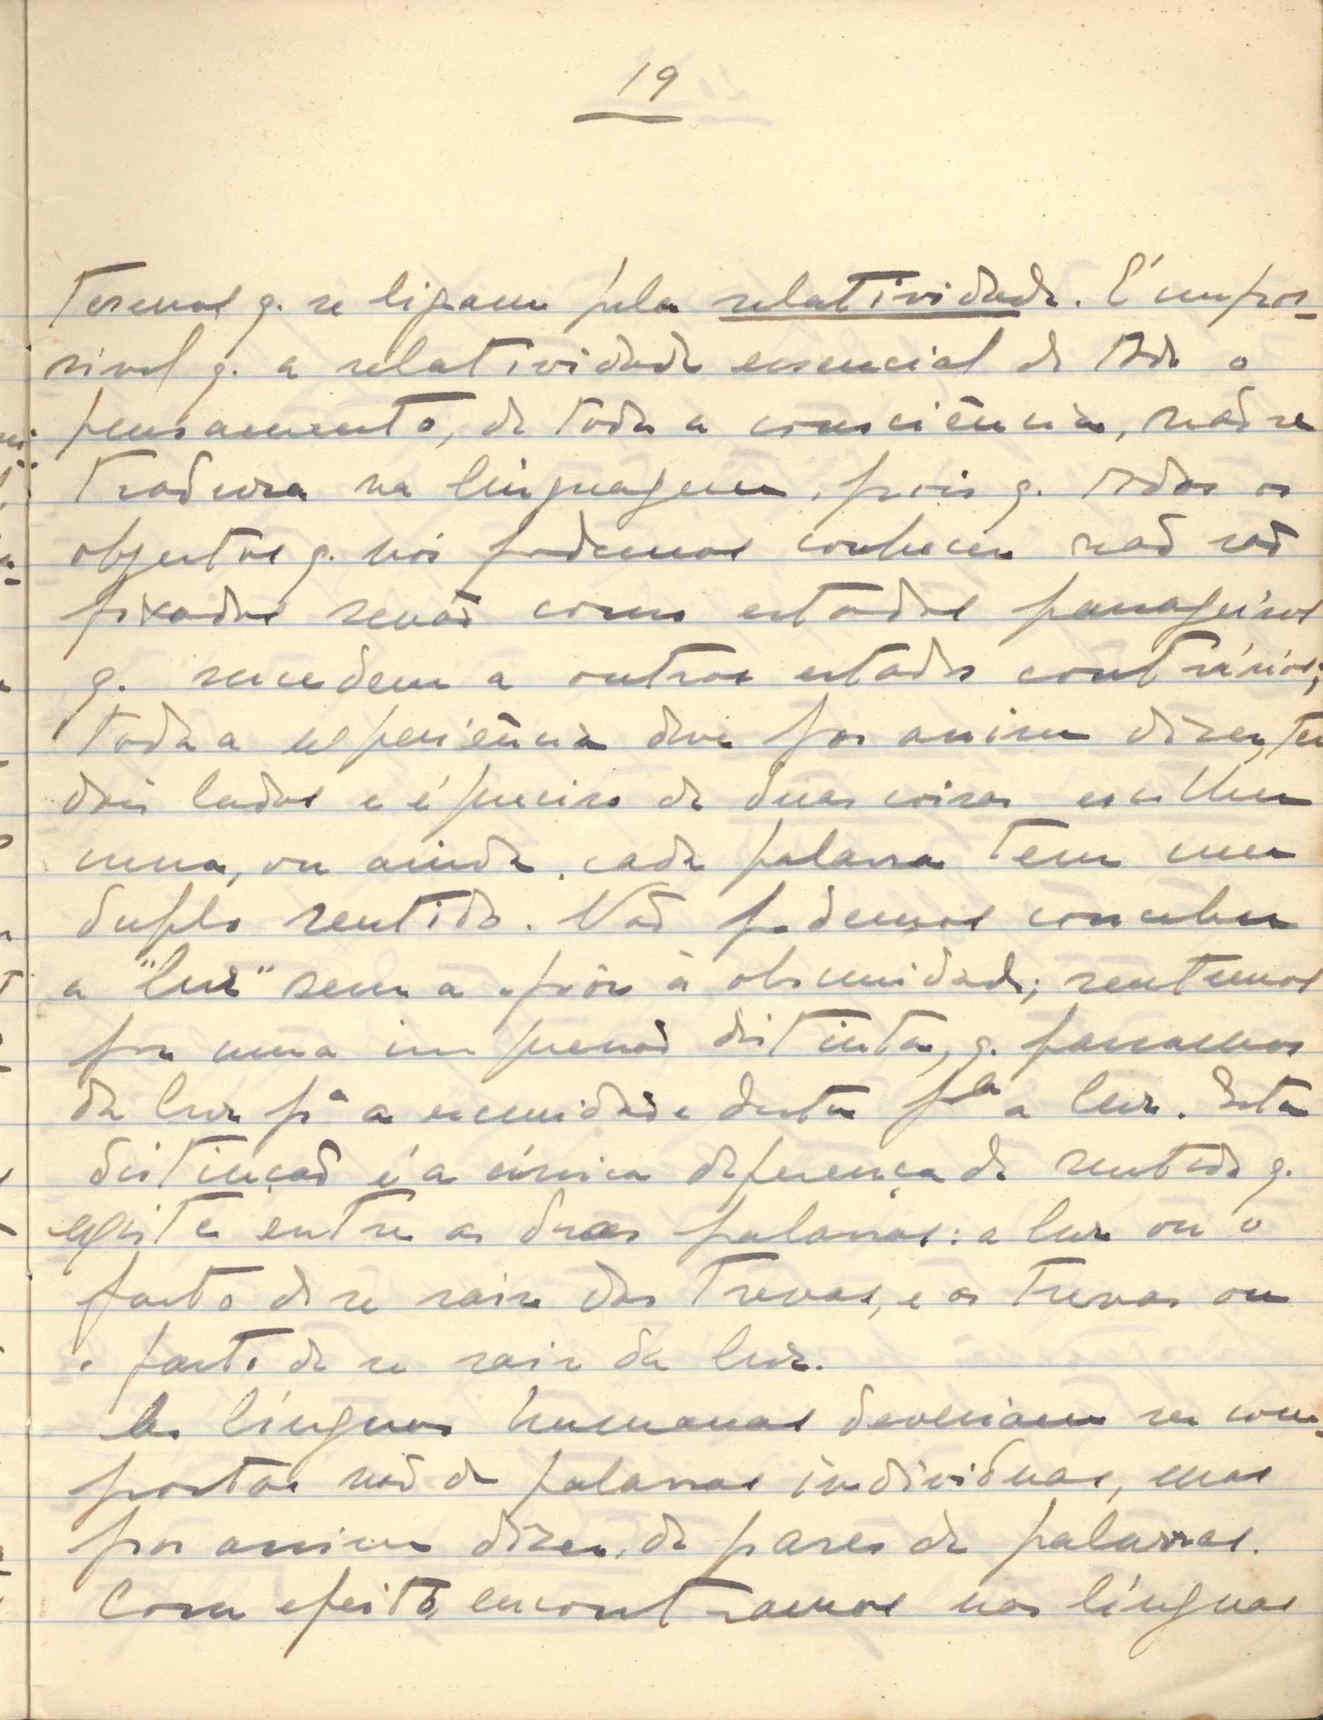 19
termos q. se ligam pela relatividade. É impos-
sível q. a relatividade essencial de todo o
pensamento, de toda a consciência, não se
traduza na linguagem, pois q. todos os
objectos q. nós podemos conhecer não são
fixados senão como estados passageiros
q. sucedem a outros estados contrários;
toda a experiência deve por assim dizer, ter
dois lados e é preciso de duas coisas escolher
uma, ou ainda, cada palavra tem um
duplo sentido. Não podemos conceber
a "luz" sem a opôr à obscuridade; sentimos
por uma impressão distinta, q. passamos
da luz pª a escuridão e desta pla a luz. Esta
distinção é a única diferença de sentido q.
existe entre as duas palavras: a luz ou o
facto de se sair das trevas, e as trevas ou
o facto de se sair da luz.
As línguas humanas deveriam ser com-
postas não de palavras individuas, mas
por assim dizer, de pares de palavras.
Com efeito, encontramos nas línguas